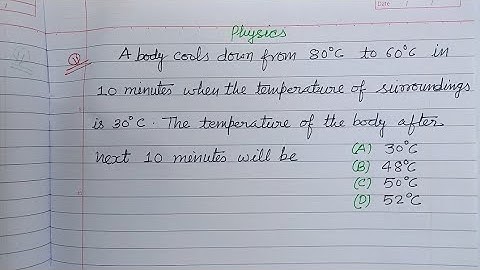 Date
Physics
Q A body cools down from 80°C to 60°C in
10 minutes when the temperature of surroundings
is 30°C. The temperature of the body after
next 10 minutes will be
(A) 30°C
(B) 48°C
(C) 50°C
(D) 52°C